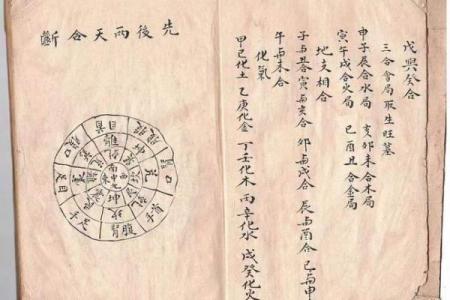 戊與癸合
三合會局取生旺墓
申子辰合水局 亥卯未合木局
寅午戌合火局 巳酉丑合金局
地支相合
子与丑合 寅与亥合 卯与戌合 辰与酉合 巳与申
午与未合
化氣
甲己化土 乙庚化金 丁壬化木 丙辛化水 戊癸化火
先後兩天合斷
離
坤